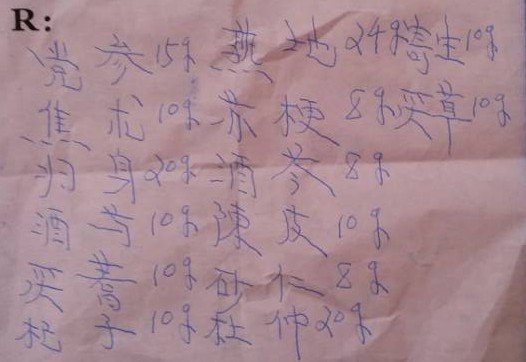 R:
党参15g 熟地24g 寄生10g
焦术10g 苏梗8g 炙草10g
归身20g 酒芩8g
酒芍10g 陳皮10g
炙蓍10g 砂仁8g
杞子10g 杜仲20g